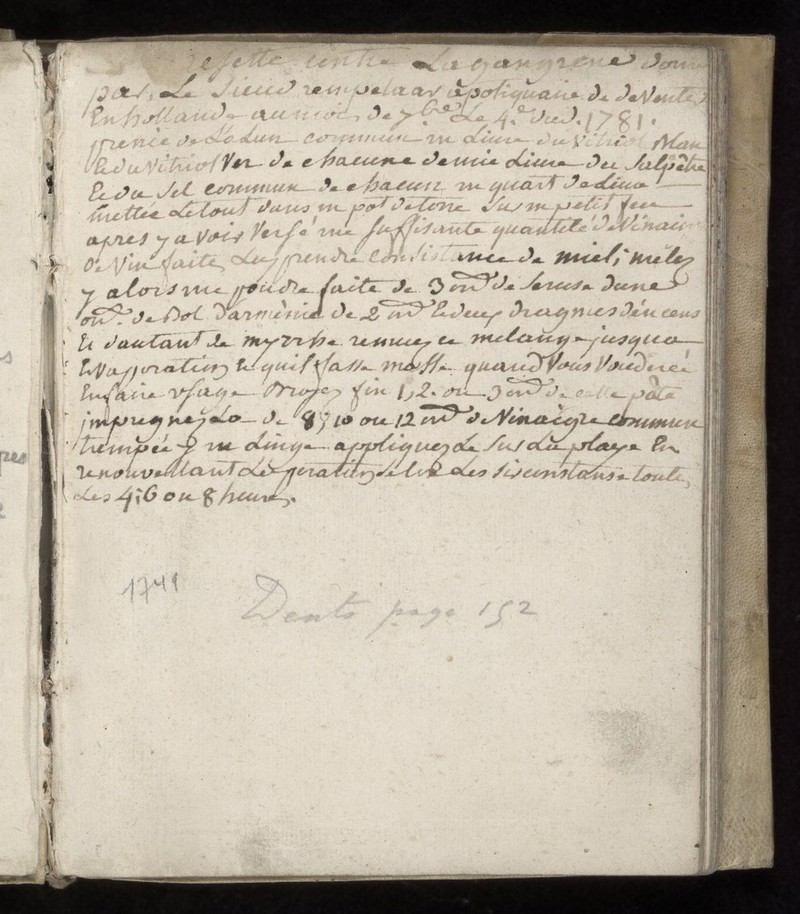 resette contre La gangrene donne
par, Le Sieur rempelaar apotiquaire de deventer
En hollande au mois de 7bre Le 4e dud. 1781.
prenéé de L'alun commun un Livre du vitriol blan
& du vitriol Ver de chacune demie Livre du Salpêtre
& du Sel commun de chacun un quart de Livre
mettée Letout dans un pot de terre Sur un petit feu
apres y avoir Versé une Suffisante quantité de Vinaigre
de Vin faite Luy prendre consistance de miel; mélez
y alors une poudre faite de 3 onc de Seruse d'une
onc. de Bol d'arménie de 2 onc & deux dragmes d'éncens
& d'autant de myrrhe remuez ce melange jusqua
Evaporation & quil fasse masse quand Vous Voudréé
En faire usage Broyez fin 1, 2. ou 3 onc de cette pâte
impregnez La de 8; 10 ou 12 onc de Vinaigre commun
trempéé y un Linge appliquez Le Sus La playe En
renouvellant Le Les sirconstanse toute
Les 4; 6 ou 8 heures.
1741
Dents page 152
res